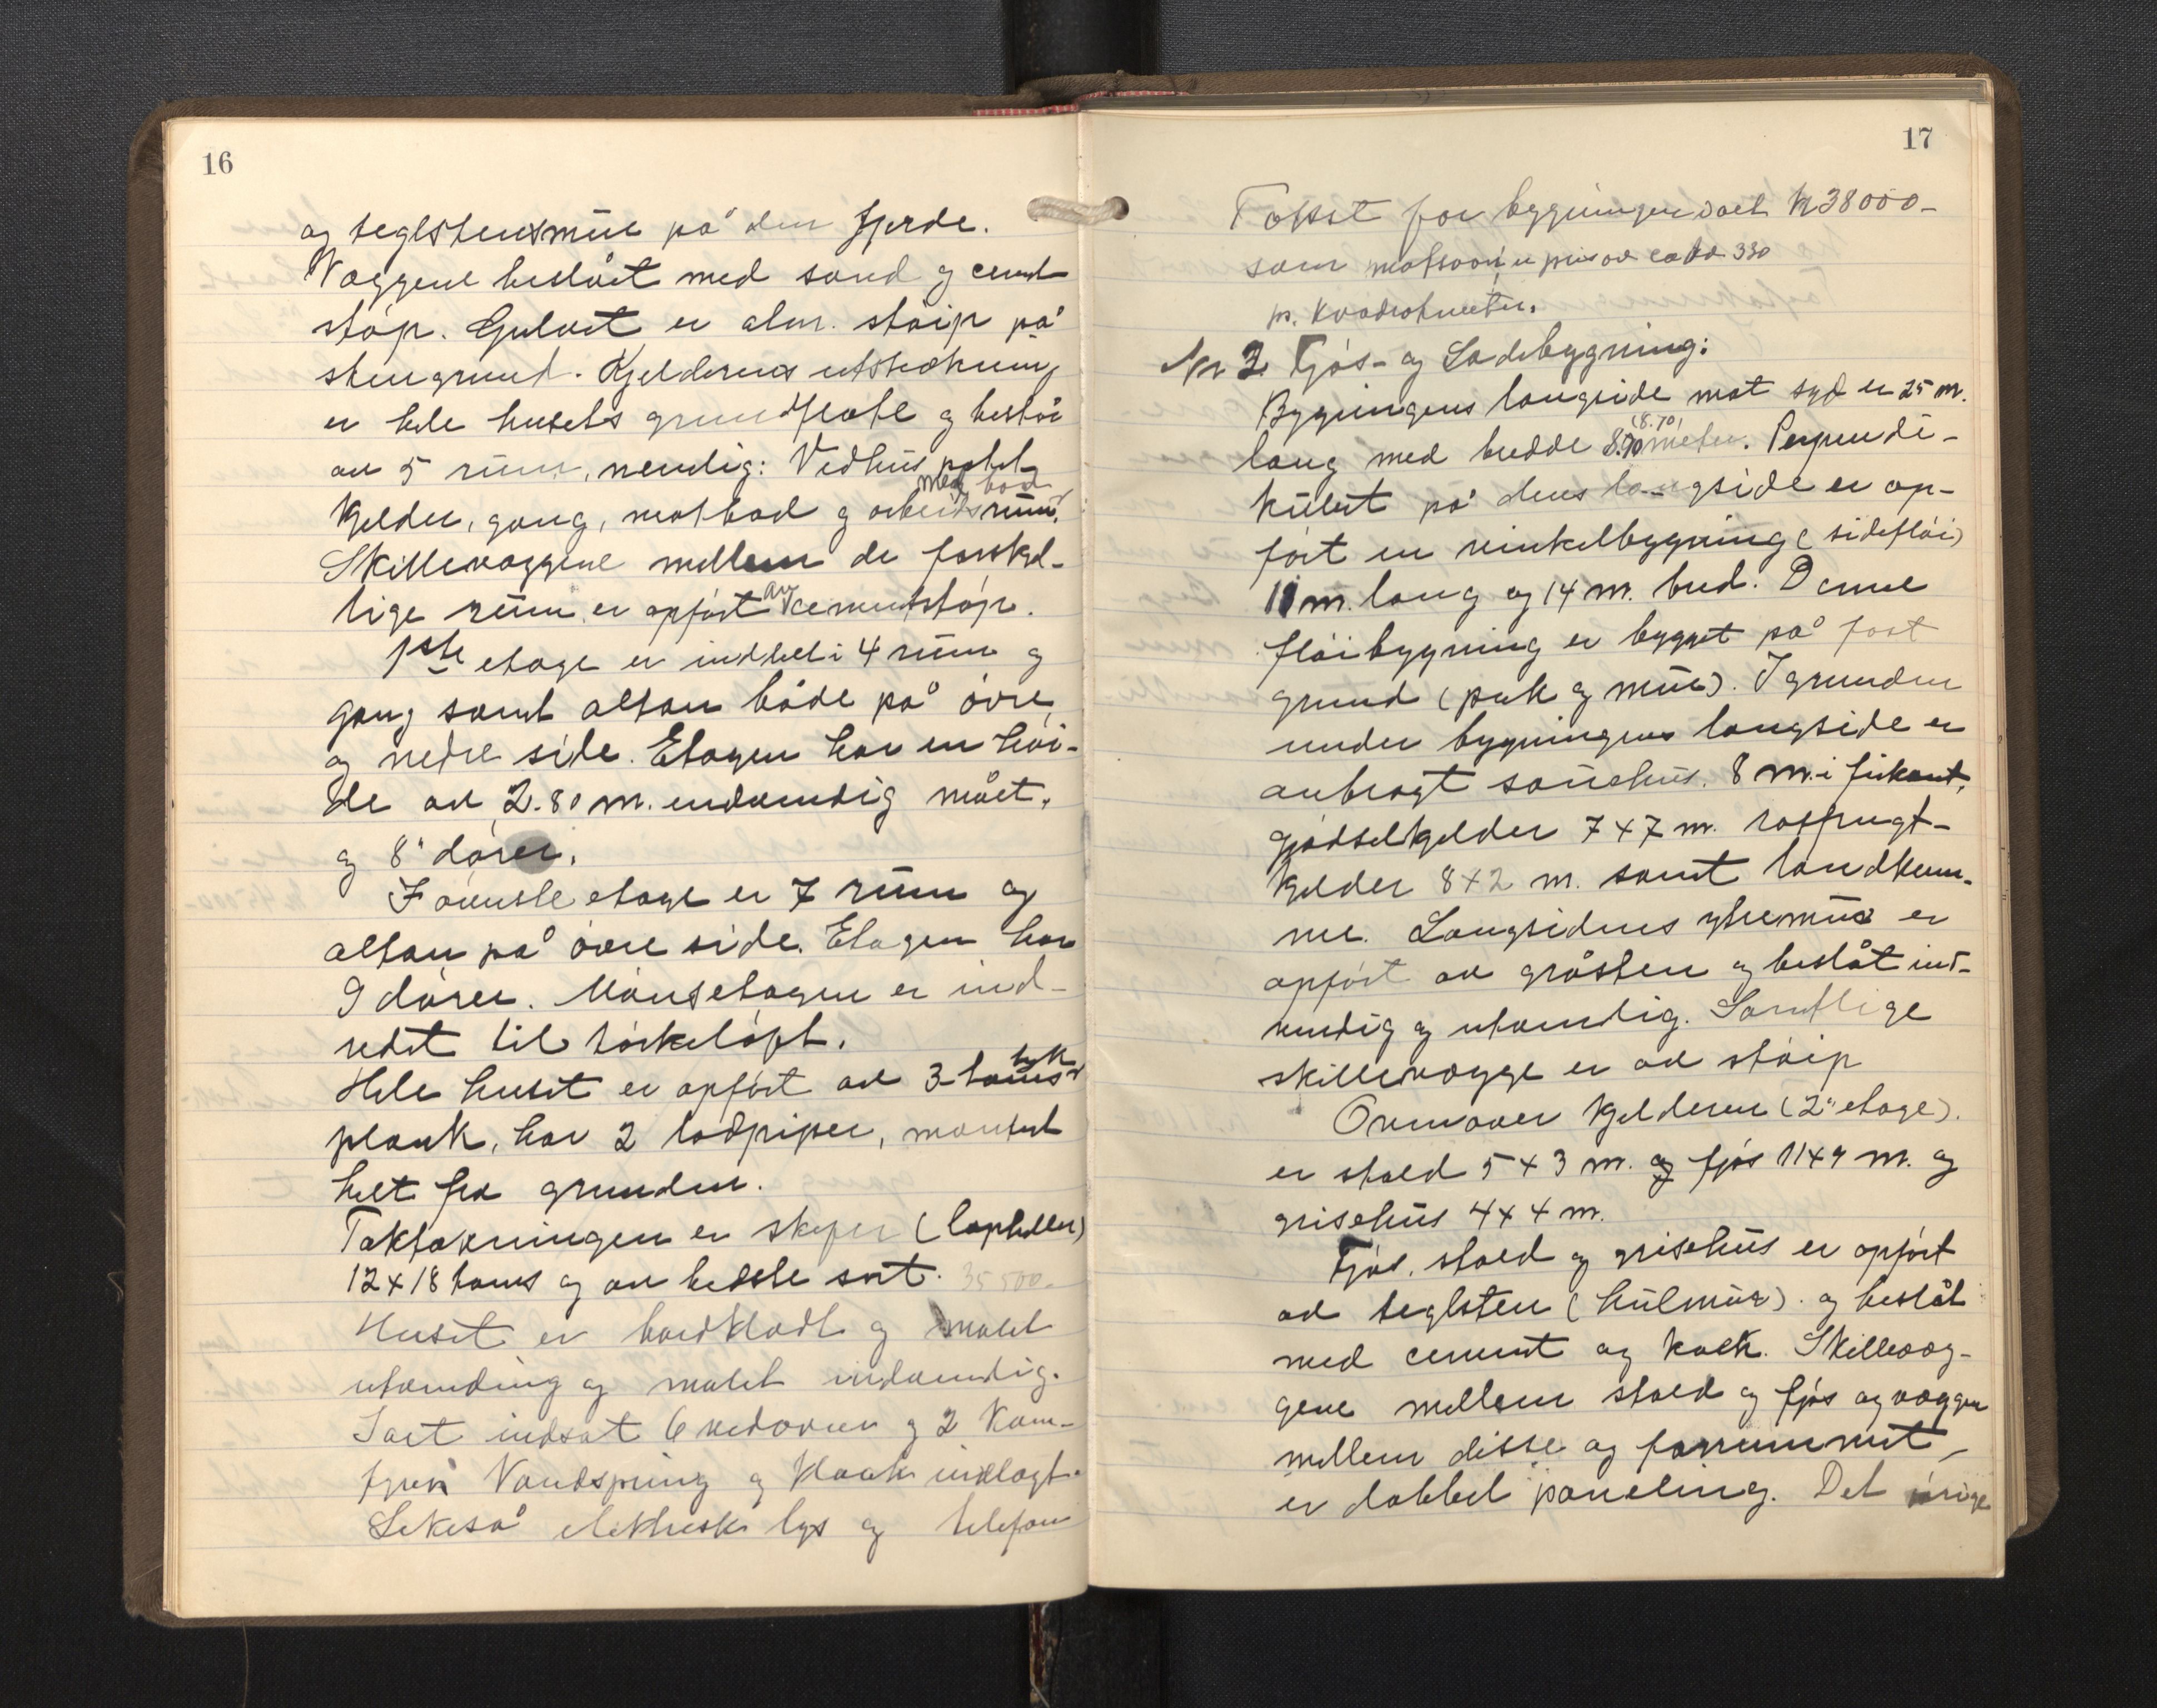 16
og teglstensmur på den fjerde.
Væggene beslåt med sand og cement
støp. Gulvet er alm. støip på
stengrund. Kjelderens utstrækning
er hele husets grundflate og består
av 5 rum, nemlig: Vedhus, potet
med bod
kjelder, gang, matbod og arbeidsrum.
Skillevæggene mellem de forskjel-
lige rum er opført av cementstøp.
1ste etage er inddelt i 4 rum og
gang samt altan både på øvre
og nedre side. Etagen har en høi-
de av 2.80 m. indvendig målt,
og 8 dører.
I øverste etage er 7 rum og
altan på øvre side. Etagen har
9 dører. Mønsetagen er ind-
redet til tørkeloft.
Hele huset er opført av 3 toms tyk
plank, har 2 lodpiper, montert
helt fra grunden.
Taktækningen er skifer (lapheller)
12 x 18 toms og av bedste sort. 35 500.-
Huset er bordklædt og malet
utvendig og malet indvendig.
Isat indsat 6 vedovner og 2 kom-
fyrer. Vandspring og kloak indlagt.
Likeså elektrisk lys og telefon
17
Takst for bygningen sat kr 38000-
som motsvarer en pris av ca kr 330
pr. kvadratmeter.
Nr 2. Fjøs- og Ladebygning:
Bygningens langside mot syd er 25 m.
(8.70)
lang med bredde 8.70 meter. Perpendi-
kulært på dens langside er op-
ført en vinkelbygning (sidefløi)
11 m. lang og 14 m. bred. Denne
fløibygning er bygget på fast
grund (puk og mur). I grunden
under bygningens langside er
anbragt sauehus. 8 m. i firkant,
gjødselkjelder 7 x 7 m. rotfrugt-
kjelder 8 x 2 m. samt landkum-
me. Langsidens ytremur er
opført av gråsten og beslåt ind-
vendig og utvendig. Samtlige
skillevægge er av støip
Ovenover kjelderen (2" etage).
er stald 5 x 3 m. og fjøs 11 x 9 m. og
grisehus 4 x 4 m.
Fjøs, stald og grisehus er opført
av teglsten (hulmur). og beslåt
med cement og kalk. Skillevæg-
gene mellem stald og fjøs og væggen
mellem disse og forrummet,
er dobbel paneling. Det øvrige